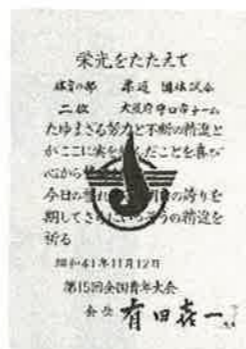 栄光をたたえて
体育の部 柔道 団体試合
二位 大阪府守口市チーム
たゆまざる努力と不断の精進と
がここに実を結んだことを喜び
心から
今日の 誇りを
期してさらにいっそうの精進を
祈る
昭和41年11月12日
第15回全国青年大会
会長 有田喜一